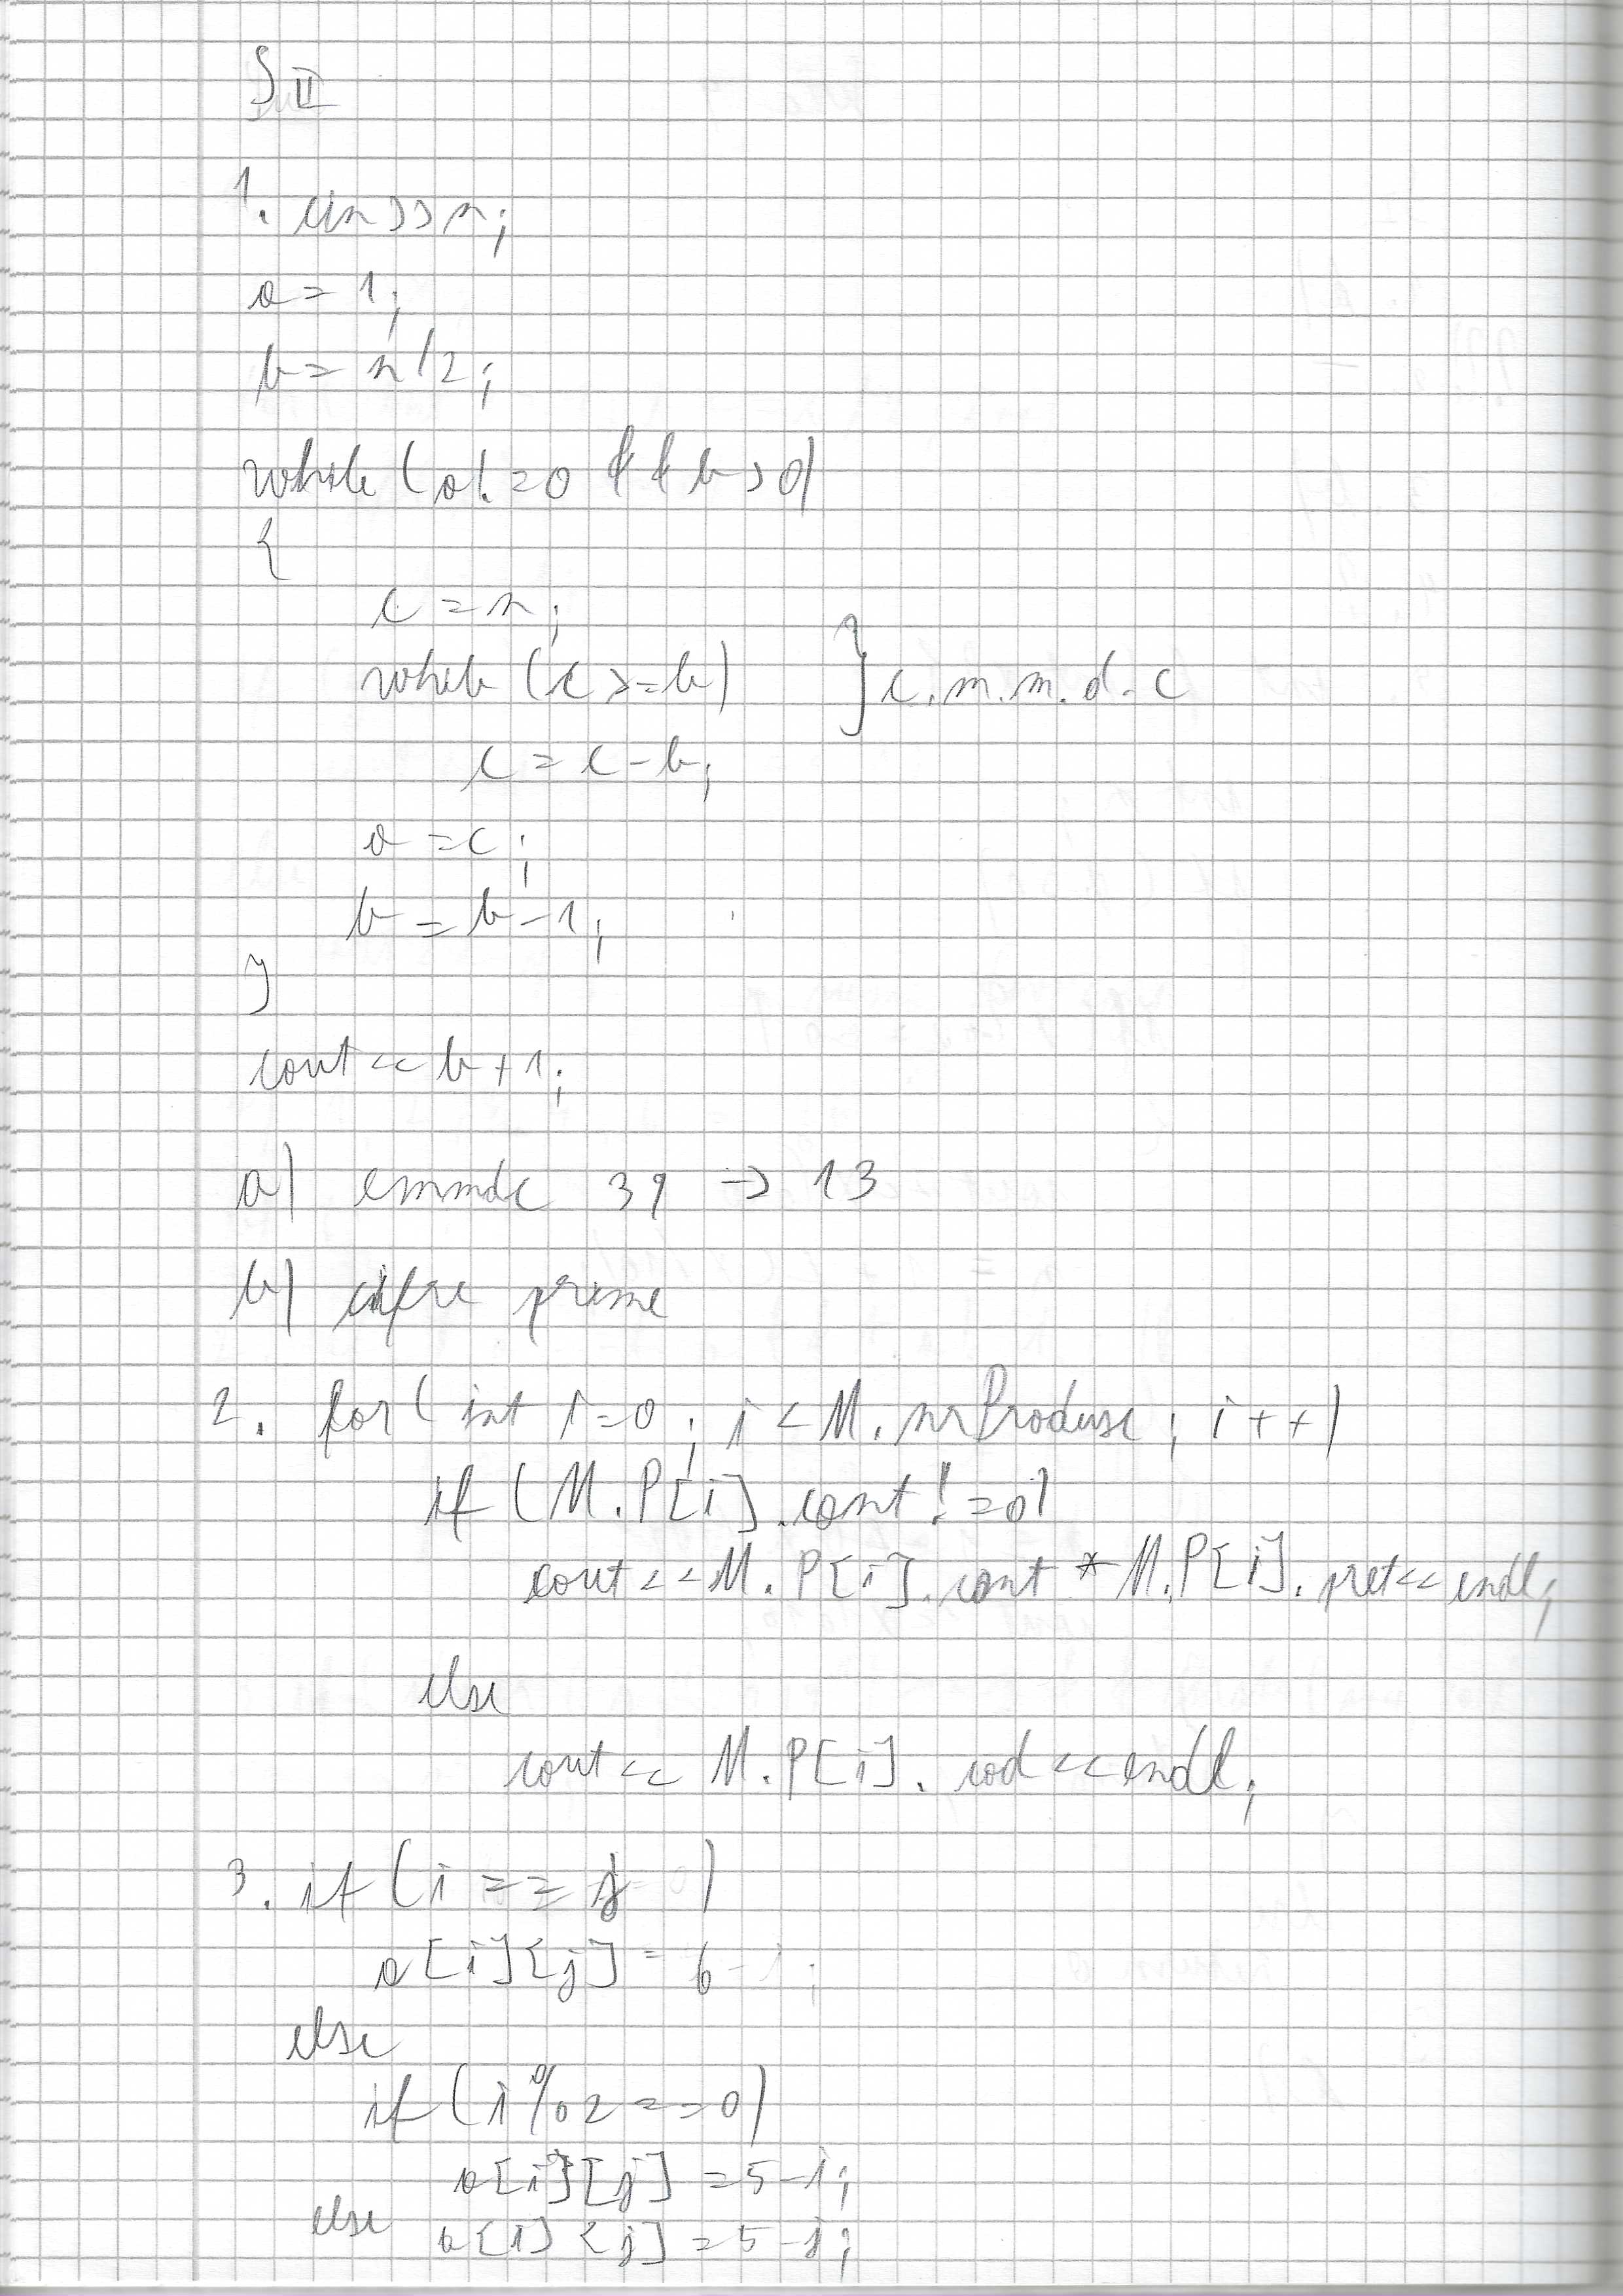 S II
1. cin>>n;
a = 1;
b = n/2;
while (a!=0 && b>0)
{
c = n;
while (c >= b) } c.m.m.d.c
c = c - b;
a = c;
b = b - 1;
}
cout << b + 1;
a) cmmdc 39 -> 13
b) cifre prime
2. for( int i=0; i < M.nrProduse; i++)
if (M.P[i].cont != 0)
cout << M.P[i].cont * M.P[i].pret << endl;
else
cout << M.P[i].cod << endl;
3. if (i == j)
a[i][j] = 6
else
if (i%2 == 0)
a[i][j] = 5-i;
else a[i][j] = 5-j;